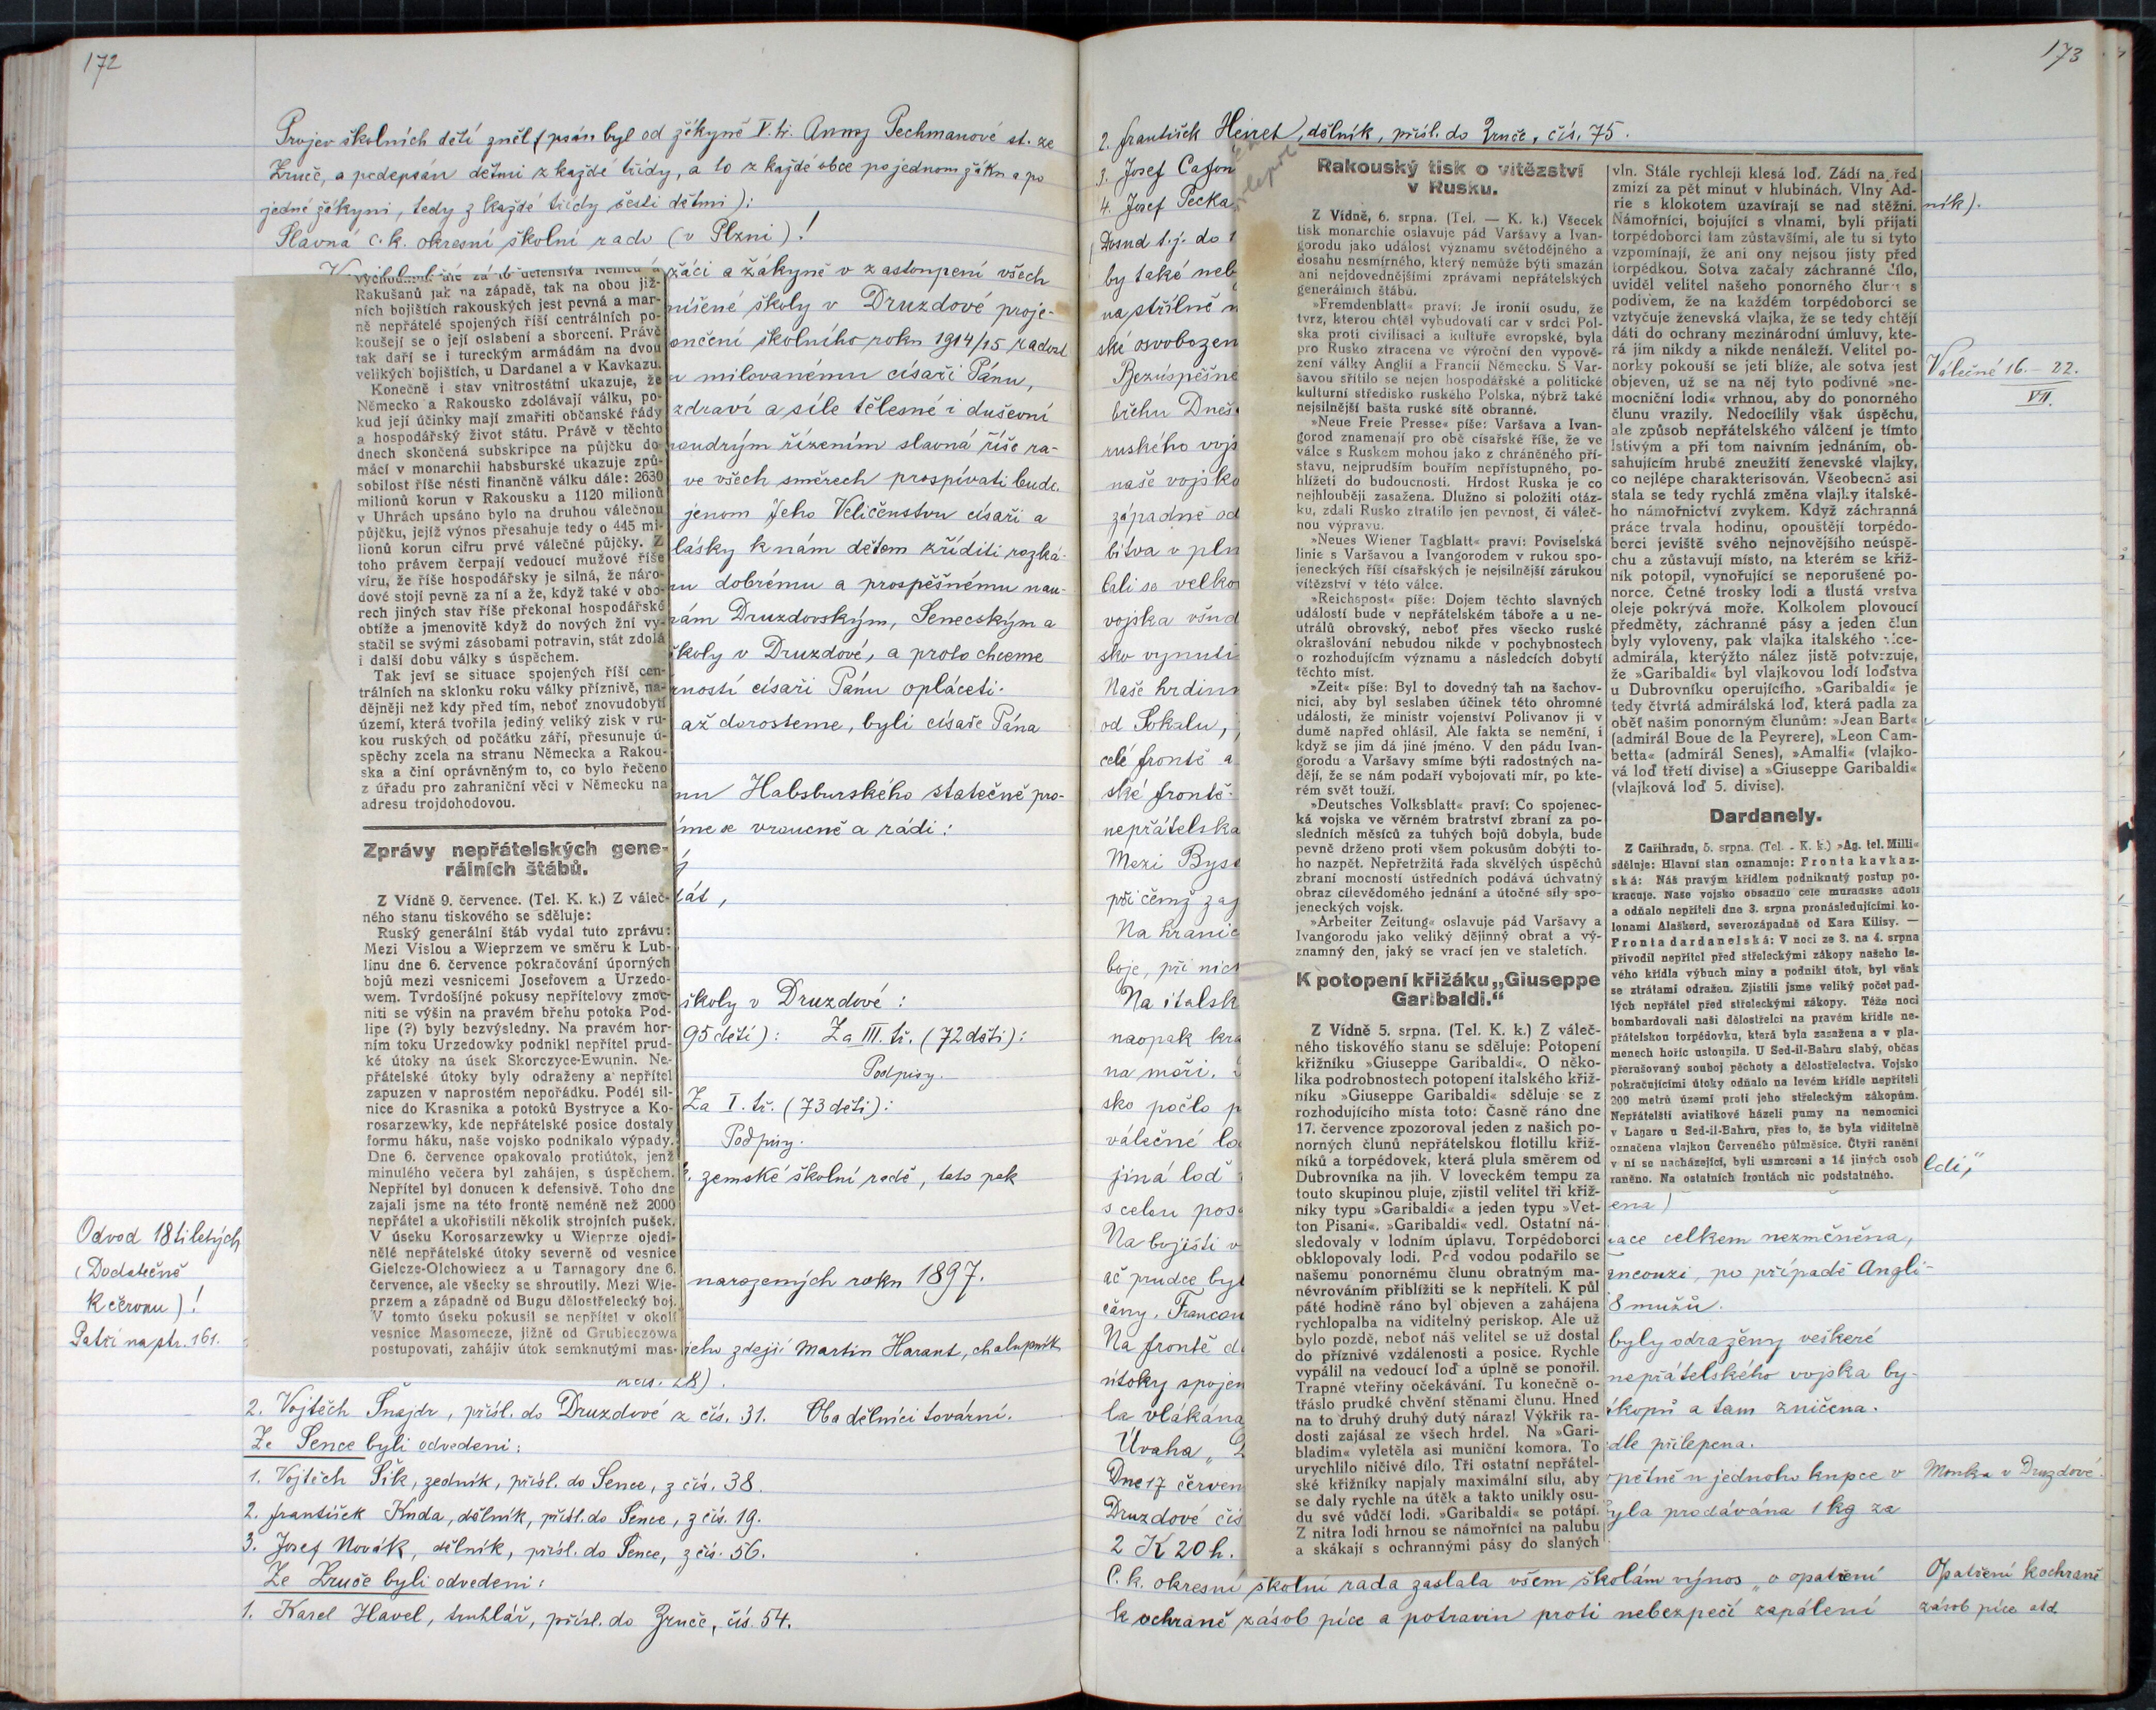 172
Projev školních dětí zněl (psán byl od žákyně V. tř. Anny Pechmanové st. ze
Zruče, a podepsán dětmi z každé třídy, a to z každé obce po jednom žáku a po
jedné žákyni, tedy z každé třídy šesti dětmi):
Slavná c. k. okresní školní rado (v Plzni)!
žáci a žákyně v zastoupení všech
níšené školy v Druzdové proje-
ončení školního roku 1914/15 radost
u milovanému císaři Pánu,
zdraví a síle tělesné i duševní
moudrým řízením slavná říše ra-
ve všech směrech prospívati bude.
jenom Jeho Veličenstvu císaři a
lásky k nám dětem zříditi rozká-
nu dobrému a prospěšnému nau-
nám Druzdovským, Seneckým a
školy v Druzdové, a proto chceme
rností císaři Pánu opláceti.
až dorosteme, byli císaře Pána
nu Habsburského statečně pro-
íme se vroucně a rádi:
tát,
školy v Druzdové:
95 dětí): Za III. tř. (72 děti):
Podpisy.
Za I. tř. (73 děti):
Podpisy.
zemské školní radě, tato pak
Odvod 18tiletých
(Dodatečně
k červnu)!
Patří na str. 161.
narozených roku 1897.
jeho zdejší Martin Harant, chalupník
28).
2. Vojtěch Šnajdr, přísl. do Druzdové z čís. 31. Oba dělníci tovární.
Ze Sence byli odvedeni:
1. Vojtěch Šik, zedník, přísl. do Sence, z čís. 38.
2. František Kuda, dělník, přísl. do Sence, z čís. 19.
3. Josef Novák, dělník, přísl. do Sence, z čís. 56.
Ze Zruče byli odvedeni:
1. Karel Havel, truhlář, přísl. do Zruče, čís. 54.
Rakušanů jak na západě, tak na obou již-
ních bojištích rakouských jest pevná a mar-
ně nepřátelé spojených říší centrálních po-
koušejí se o její oslabení a sborcení. Právě
tak daří se i tureckým armádám na dvou
velikých bojištích, u Dardanel a v Kavkazu.
Konečně i stav vnitrostátní ukazuje, že
Německo a Rakousko zdolávají válku, po-
kud její účinky mají zmařiti občanské řády
a hospodářský život státu. Právě v těchto
dnech skončená subskripce na půjčku do-
mácí v monarchii habsburské ukazuje způ-
sobilost říše nésti finančně válku dále: 2630
milionů korun v Rakousku a 1120 milionů
v Uhrách upsáno bylo na druhou válečnou
půjčku, jejíž výnos přesahuje tedy o 445 mi-
lionů korun cifru prvé válečné půjčky. Z
toho právem čerpají vedoucí mužové říše
víru, že říše hospodářsky je silná, že náro-
dové stojí pevně za ní a že, když také v obo-
rech jiných stav říše překonal hospodářské
obtíže a jmenovitě když do nových žní vy-
stačil se svými zásobami potravin, stát zdolá
i další dobu války s úspěchem.
Tak jeví se situace spojených říší cen-
trálních na sklonku roku války příznivě, na-
dějněji než kdy před tím, neboť znovudobytí
území, která tvořila jediný veliký zisk v ru-
kou ruských od počátku září, přesunuje ú-
spěchy zcela na stranu Německa a Rakou-
ska a činí oprávněným to, co bylo řečeno
z úřadu pro zahraniční věci v Německu na
adresu trojdohodovou.
Zprávy nepřátelských gene-
rálních štábů.
Z Vídně 9. července. (Tel. K. k.) Z váleč-
ného stanu tiskového se sděluje:
Ruský generální štáb vydal tuto zprávu:
Mezi Vislou a Wieprzem ve směru k Lub-
linu dne 6. července pokračování úporných
bojů mezi vesnicemi Josefovem a Urzedo-
wem. Tvrdošíjné pokusy nepřítelovy zmoc-
niti se výšin na pravém břehu potoka Pod-
lipe (?) byly bezvýsledny. Na pravém hor-
ním toku Urzedowky podnikl nepřítel prud-
ké útoky na úsek Skorczyce-Ewunin. Ne-
přátelské útoky byly odraženy a nepřítel
zapuzen v naprostém nepořádku. Podél sil-
nice do Krasnika a potoků Bystryce a Ko-
rosarzewky, kde nepřátelské posice dostaly
formu háku, naše vojsko podnikalo výpady.
Dne 6. července opakovalo protiútok, jenž
minulého večera byl zahájen, s úspěchem.
Nepřítel byl donucen k defensivě. Toho dne
zajali jsme na této frontě neméně než 2000
nepřátel a ukořistili několik strojních pušek.
V úseku Korosarzewky u Wieprze ojedi-
nělé nepřátelské útoky severně od vesnice
Gielcze-Olchowiecz a u Tarnagory dne 6.
července, ale všecky se shroutily. Mezi Wie-
przem a západně od Bugu dělostřelecký boj.
V tomto úseku pokusil se nepřítel v okolí
vesnice Masomecze, jižně od Grubieczowa
postupovati, zahájiv útok semknutými mas-
173
2. František Heiret, dělník, přísl. do Zruče, čís. 75.
3. Josef
4. Josef Pecka
ník).
Dosud t. j. do
by také neb
na střílně
ské osvobozen
Válečné 16.–22.
VII.
Bezúspěšné
břehu Dněs
ruského vojs
naše vojsko
západně od
bitva v pln
vojska všud
sko vynuti
Naše hrdin
od Sokalu,
celé frontě a
ské frontě.
nepřátelská
Mezi Byst
při čemž zaj
Na hranic
boje, při nich
Na italsk
naopak
na moři.
sko počlo
válečné lo
jiná loď
ldi"
s celou pos
Na bojišti
ace celkem nezměněna,
ač prudce by
ancouzi, po případě Angli-
čany. Francou
8 mužů.
Na frontě d
byly odraženy veškeré
útoky spojen
nepřátelského vojska by-
la vlákána
ákopů a tam zničena.
Úvaha „
dle přilepena.
Dne 17 červen
opětně u jednoho kupce v
Mouka v Druzdové.
Druzdové čís
byla prodávána 1 kg za
2 K 20 h.
C. k. okresní školní rada zaslala všem školám výnos „o opatření
Opatření k ochraně
k ochraně zásob píce a potravin proti nebezpečí zapálení
zásob píce atd.
Rakouský tisk o vítězství
v Rusku.
Z Vídně, 6. srpna. (Tel. — K. k.) Všecek
tisk monarchie oslavuje pád Varšavy a Ivan-
gorodu jako událost významu světodějného a
dosahu nesmírného, který nemůže býti smazán
ani nejdovednějšími zprávami nepřátelských
generálních štábů.
»Fremdenblatt« praví: Je ironií osudu, že
tvrz, kterou chtěl vybudovati car v srdci Pol-
ska proti civilisaci a kultuře evropské, byla
pro Rusko ztracena ve výroční den vypově-
zení války Anglií a Francií Německu. S Var-
šavou sřítilo se nejen hospodářské a politické
kulturní středisko ruského Polska, nýbrž také
nejsilnější bašta ruské sítě obranné.
»Neue Freie Presse« píše: Varšava a Ivan-
gorod znamenají pro obě císařské říše, že ve
válce s Ruskem mohou jako z chráněného pří-
stavu, nejprudším bouřím nepřístupného, po-
hlížeti do budoucnosti. Hrdost Ruska je co
nejhlouběji zasažena. Dlužno si položiti otáz-
ku, zdali Rusko ztratilo jen pevnost, či váleč-
nou výpravu.
»Neues Wiener Tagblatt« praví: Poviselská
linie s Varšavou a Ivangorodem v rukou spo-
jeneckých říší císařských je nejsilnější zárukou
vítězství v této válce.
»Reichspost« píše: Dojem těchto slavných
událostí bude v nepřátelském táboře a u ne-
utrálů obrovský, neboť přes všecko ruské
okrašlování nebudou nikde v pochybnostech
o rozhodujícím významu a následcích dobytí
těchto míst.
»Zeit« píše: Byl to dovedný tah na šachov-
nici, aby byl seslaben účinek této ohromné
události, že ministr vojenství Polivanov ji v
dumě napřed ohlásil. Ale fakta se nemění, i
když se jim dá jiné jméno. V den pádu Ivan-
gorodu a Varšavy smíme býti radostných na-
dějí, že se nám podaří vybojovati mír, po kte-
rém svět touží.
»Deutsches Volksblatt« praví: Co spojenec-
ká vojska ve věrném bratrství zbraní za po-
sledních měsíců za tuhých bojů dobyla, bude
pevně drženo proti všem pokusům dobýti to-
ho nazpět. Nepřetržitá řada skvělých úspěchů
zbraní mocností ústředních podává úchvatný
obraz cílevědomého jednání a útočné síly spo-
jeneckých vojsk.
»Arbeiter Zeitung« oslavuje pád Varšavy a
Ivangorodu jako veliký dějinný obrat a vý-
znamný den, jaký se vrací jen ve staletích.
K potopení křižáku „Giuseppe
Garibaldi.“
Z Vídně 5. srpna. (Tel. K. k.) Z váleč-
ného tiskového stanu se sděluje: Potopení
křižníku »Giuseppe Garibaldi«. O něko-
lika podrobnostech potopení italského křiž-
níku »Giuseppe Garibaldi« sděluje se z
rozhodujícího místa toto: Časně ráno dne
17. července zpozoroval jeden z našich po-
norných člunů nepřátelskou flotillu křiž-
níků a torpédovek, která plula směrem od
Dubrovníka na jih. V loveckém tempu za
touto skupinou pluje, zjistil velitel tři křiž-
níky typu »Garibaldi« a jeden typu »Vet-
ton Pisani«. »Garibaldi« vedl. Ostatní ná-
sledovaly v lodním úplavu. Torpédoborci
obklopovaly lodi. Pod vodou podařilo se
našemu ponornému člunu obratným ma-
névrováním přiblížiti se k nepříteli. K půl
páté hodině ráno byl objeven a zahájena
rychlopalba na viditelný periskop. Ale už
bylo pozdě, neboť náš velitel se už dostal
do příznivé vzdálenosti a posice. Rychle
vypálil na vedoucí loď a úplně se ponořil.
Trapné vteřiny očekávání. Tu konečně o-
třáslo prudké chvění stěnami člunu. Hned
na to druhý druhý dutý náraz! Výkřik ra-
dosti zajásal ze všech hrdel. Na »Gari-
bladim« vyletěla asi muniční komora. To
urychlilo ničivé dílo. Tři ostatní nepřátel-
ské křižníky napjaly maximální sílu, aby
se daly rychle na útěk a takto unikly osu-
du své vůdčí lodi. »Garibaldi« se potápí.
Z nitra lodi hrnou se námořníci na palubu
a skákají s ochrannými pásy do slaných
vln. Stále rychleji klesá loď. Zádí napřed
zmizí za pět minut v hlubinách. Vlny Ad-
rie s klokotem uzavírají se nad stěžni.
Námořníci, bojující s vlnami, byli přijati
torpédoborci tam zůstavšími, ale tu si tyto
vzpomínají, že ani ony nejsou jisty před
torpédkou. Sotva začaly záchranné dílo,
uviděl velitel našeho ponorného člunu s
podivem, že na každém torpédoborci se
vztyčuje ženevská vlajka, že se tedy chtějí
dáti do ochrany mezinárodní úmluvy, kte-
rá jim nikdy a nikde nenáleží. Velitel po-
norky pokouší se jeti blíže, ale sotva jest
objeven, už se na něj tyto podivné »ne-
mocniční lodi« vrhnou, aby do ponorného
člunu vrazily. Nedocílily však úspěchu,
ale způsob nepřátelského válčení je tímto
lstivým a při tom naivním jednáním, ob-
sahujícím hrubé zneužití ženevské vlajky,
co nejlépe charakterisován. Všeobecně asi
stala se tedy rychlá změna vlajky italské-
ho námořnictví zvykem. Když záchranná
práce trvala hodinu, opouštějí torpédo-
borci jeviště svého nejnovějšího neúspě-
chu a zůstavují místo, na kterém se křiž-
ník potopil, vynořující se neporušené po-
norce. Četné trosky lodi a tlustá vrstva
oleje pokrývá moře. Kolkolem plovoucí
předměty, záchranné pásy a jeden člun
byly vyloveny, pak vlajka italského více-
admirála, kterýžto nález jistě potvrzuje,
že »Garibaldi« byl vlajkovou lodí loďstva
u Dubrovníku operujícího. »Garibaldi« je
tedy čtvrtá admirálská loď, která padla za
oběť našim ponorným člunům: »Jean Bart«
(admirál Boue de la Peyrere), »Leon Cam-
betta« (admirál Senes), »Amalfi« (vlajko-
vá loď třetí divise) a »Giuseppe Garibaldi«
(vlajková loď 5. divise).
Dardanely.
Z Cařihradu, 5. srpna. (Tel. - K. k.) »Ag. tel. Milli«
sděluje: Hlavní stan oznamuje: Fronta kavkaz-
ská: Náš pravým křídlem podniknutý postup po-
kračuje. Naše vojsko obsadilo celé muradské údolí
a odňalo nepříteli dne 3. srpna pronásledujícími ko-
lonami Alaškerd, severozápadně od Kara Kilisy. —
Fronta dardanelská: V noci ze 3. na 4. srpna
přivodil nepřítel před střeleckými zákopy našeho le-
vého křídla výbuch miny a podnikl útok, byl však
se ztrátami odražen. Zjistili jsme veliký počet pad-
lých nepřátel před střeleckými zákopy. Téže noci
bombardovali naši dělostřelci na pravém křídle ne-
přátelskou torpédovku, která byla zasažena a v pla-
menech hoříc ustoupila. U Sed-il-Bahru slabý, občas
přerušovaný souboj pěchoty a dělostřelectva. Vojsko
pokračujícími útoky odňalo na levém křídle nepříteli
200 metrů území proti jeho střeleckým zákopům.
Nepřátelští aviatikové házeli pumy na nemocnici
v Lagare u Sed-il-Bahru, přes to, že byla viditelně
označena vlajkou Červeného půlměsíce. Čtyři ranění
v ní se nacházející, byli usmrceni a 14 jiných osob
raněno. Na ostatních frontách nic podstatného.